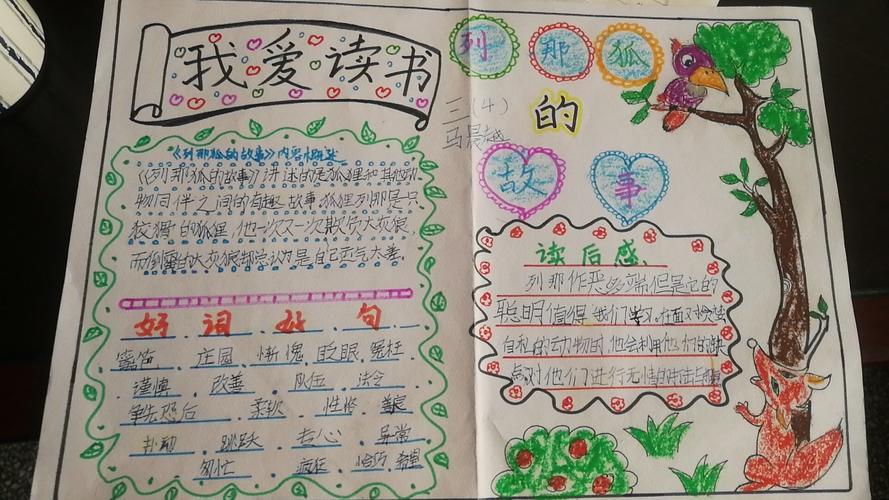 我爱读书
《列那狐的故事》内容概述
《列那狐的故事》讲述的是狐狸和其他动
物同伴之间的有趣故事.狐狸列那是只
狡猾的狐狸,他一次又一次欺负大灰狼,
而倒霉的大灰狼却总认为是自己运气太差.
好 词 好 句
庄园 惭愧 眨眼 冤枉
谨慎 改善 队伍 法令
争先恐后 柔软 性格
扑动 跳跃 专心 异常
匆忙 疯狂 恰巧 希望
列那狐
三(4) 的
马晨越
故事
读后感
列那作恶多端但是它的
聪明值得我们学习,在面对贪婪
自私的动物时,他会利用他们的缺
点对他们进行无情的